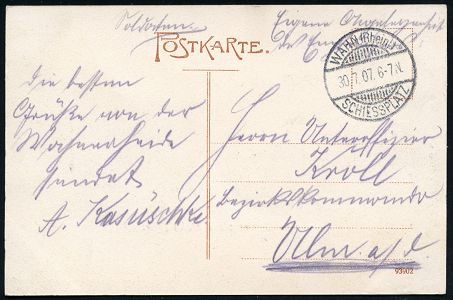 Soldaten.
Eigene Angelegenheit
des Em
POSTKARTE.
WAHN (Rheinl)
30.7.07. 6-7.N.
SCHIESSPLATZ
die besten
Grüße von der
Wahnerheide
sendet
A. Kasüschke
Herrn Unteroffizier
Kroll
Bezirkskommando
Ulm a/d.
93902